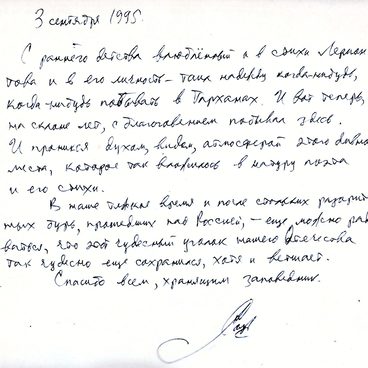 3 сентября 1995.
С раннего детства влюблённый и в стихи Лермон
това и в его личность – таил надежду когда-нибудь,
когда-нибудь побывать в Тарханах. И вот теперь,
на склоне лет, с благоговением побывал здесь.
И проникся духом, видом, атмосферой этого дивного
места, которое так впилось в натуру поэта
и его стихи.
В наше тяжкое время и после стольких разрушитель
ных бурь, прошедших над Россией, – ещё можно радо
ваться, что этот чудесный уголок нашего Отечества
так чудесно ещё сохранился, хотя и ветшает.
Спасибо всем, хранящим заповедник.